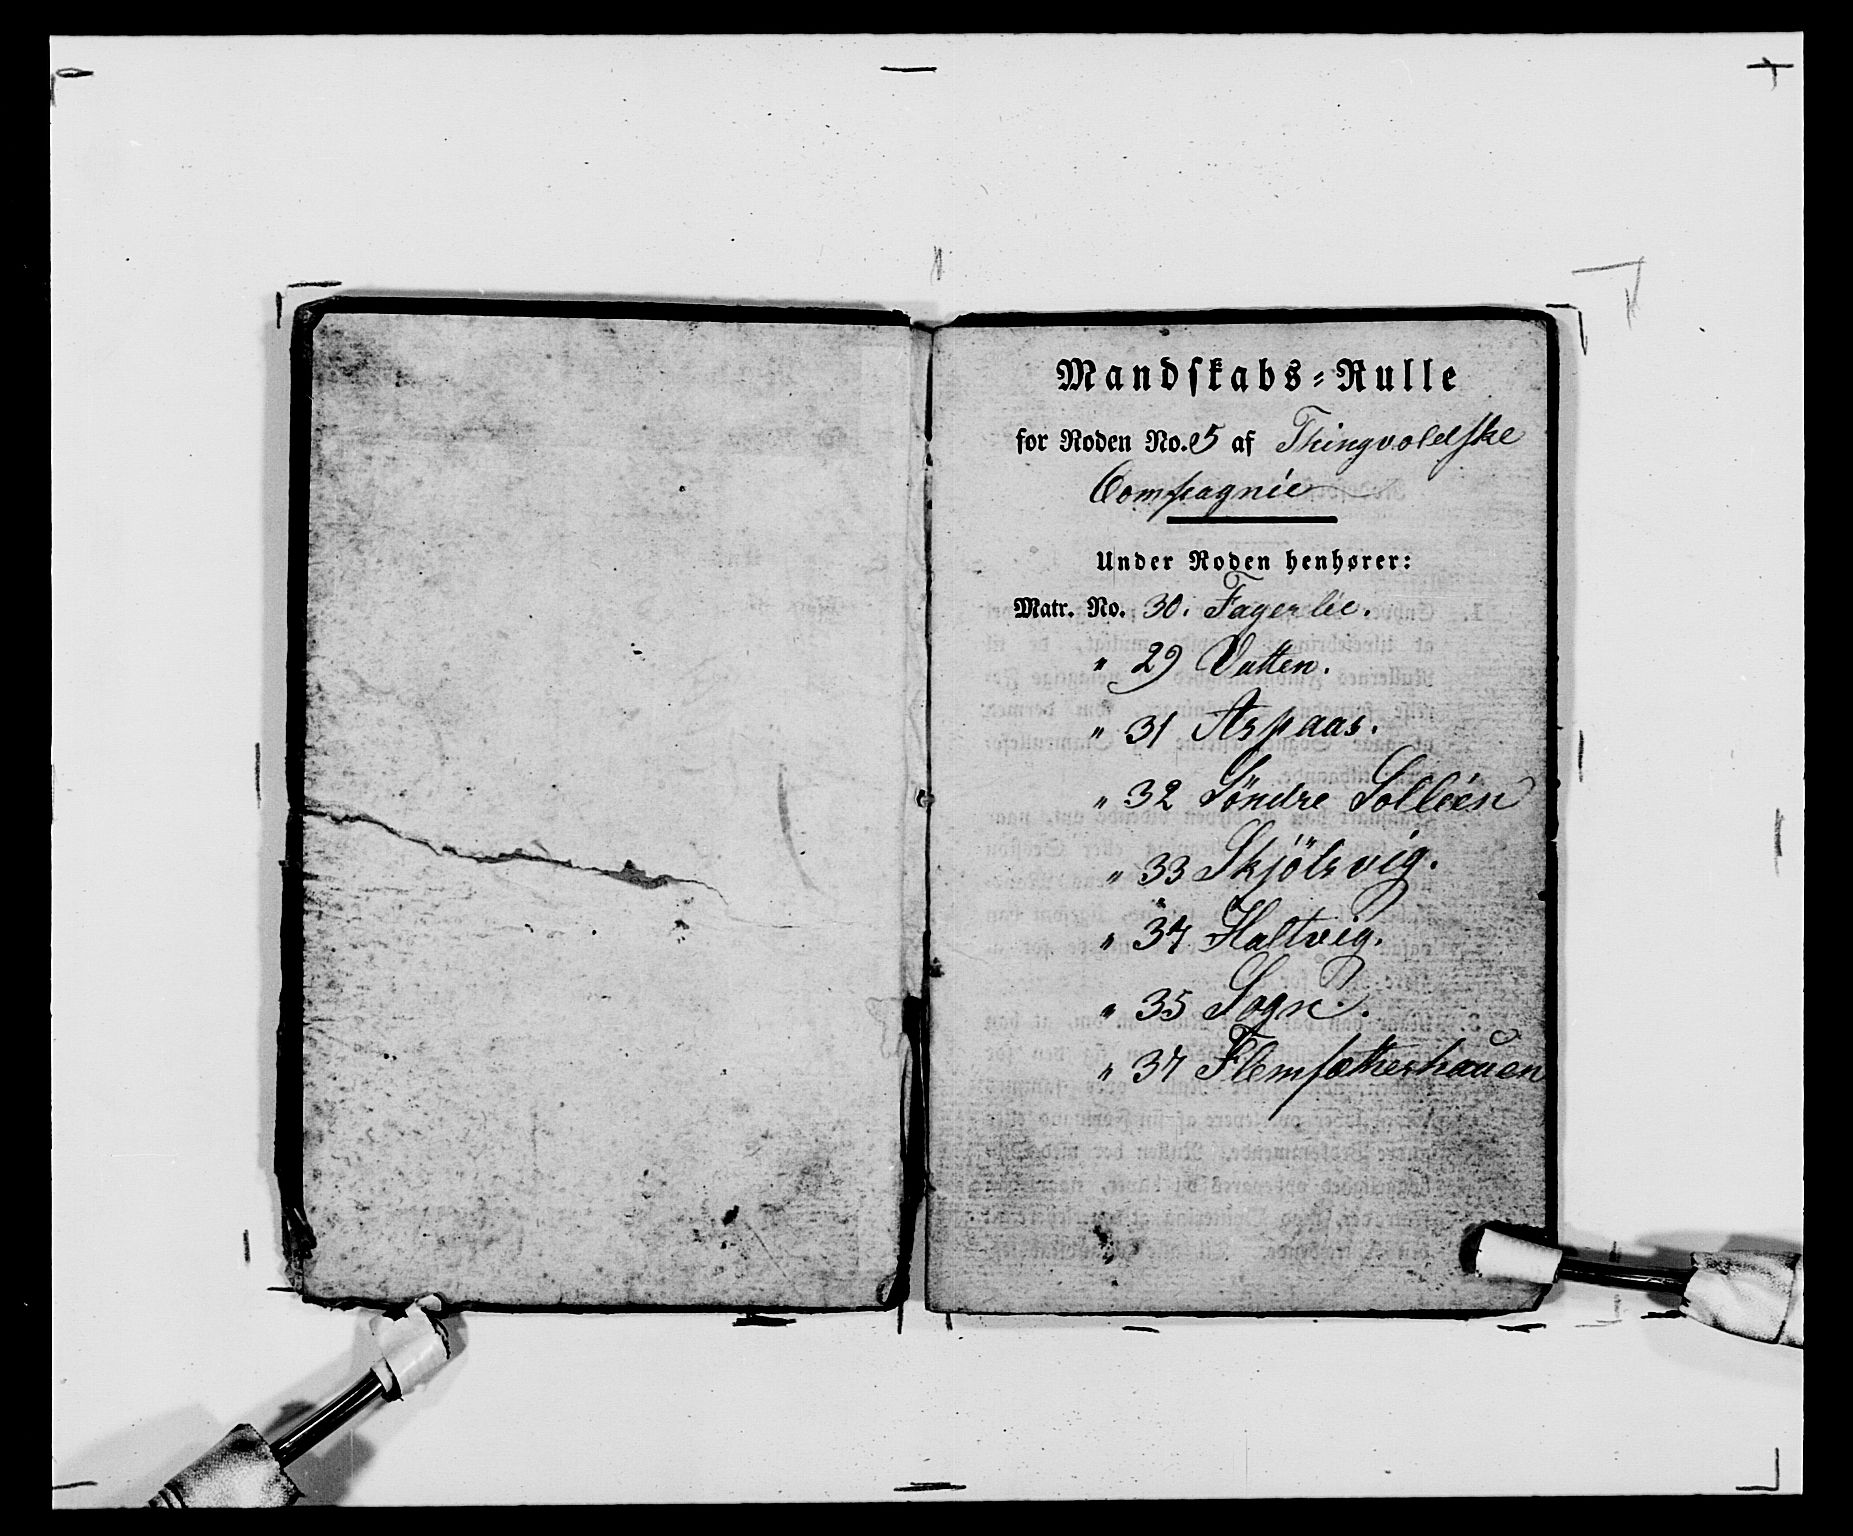 Mandskabs-Rulle
for Roden No. 5 af Thingvoldske
Compagnie
Under Roden henhører:
Matr. No. 30. Fagerlie.
" 29 Vatten.
" 31 Aspaas.
" 32 Söndre Sollien
" 33 Skjölsvig.
" 34 Haltvig.
" 35 Sogn.
" 37 Flemsætherhauen